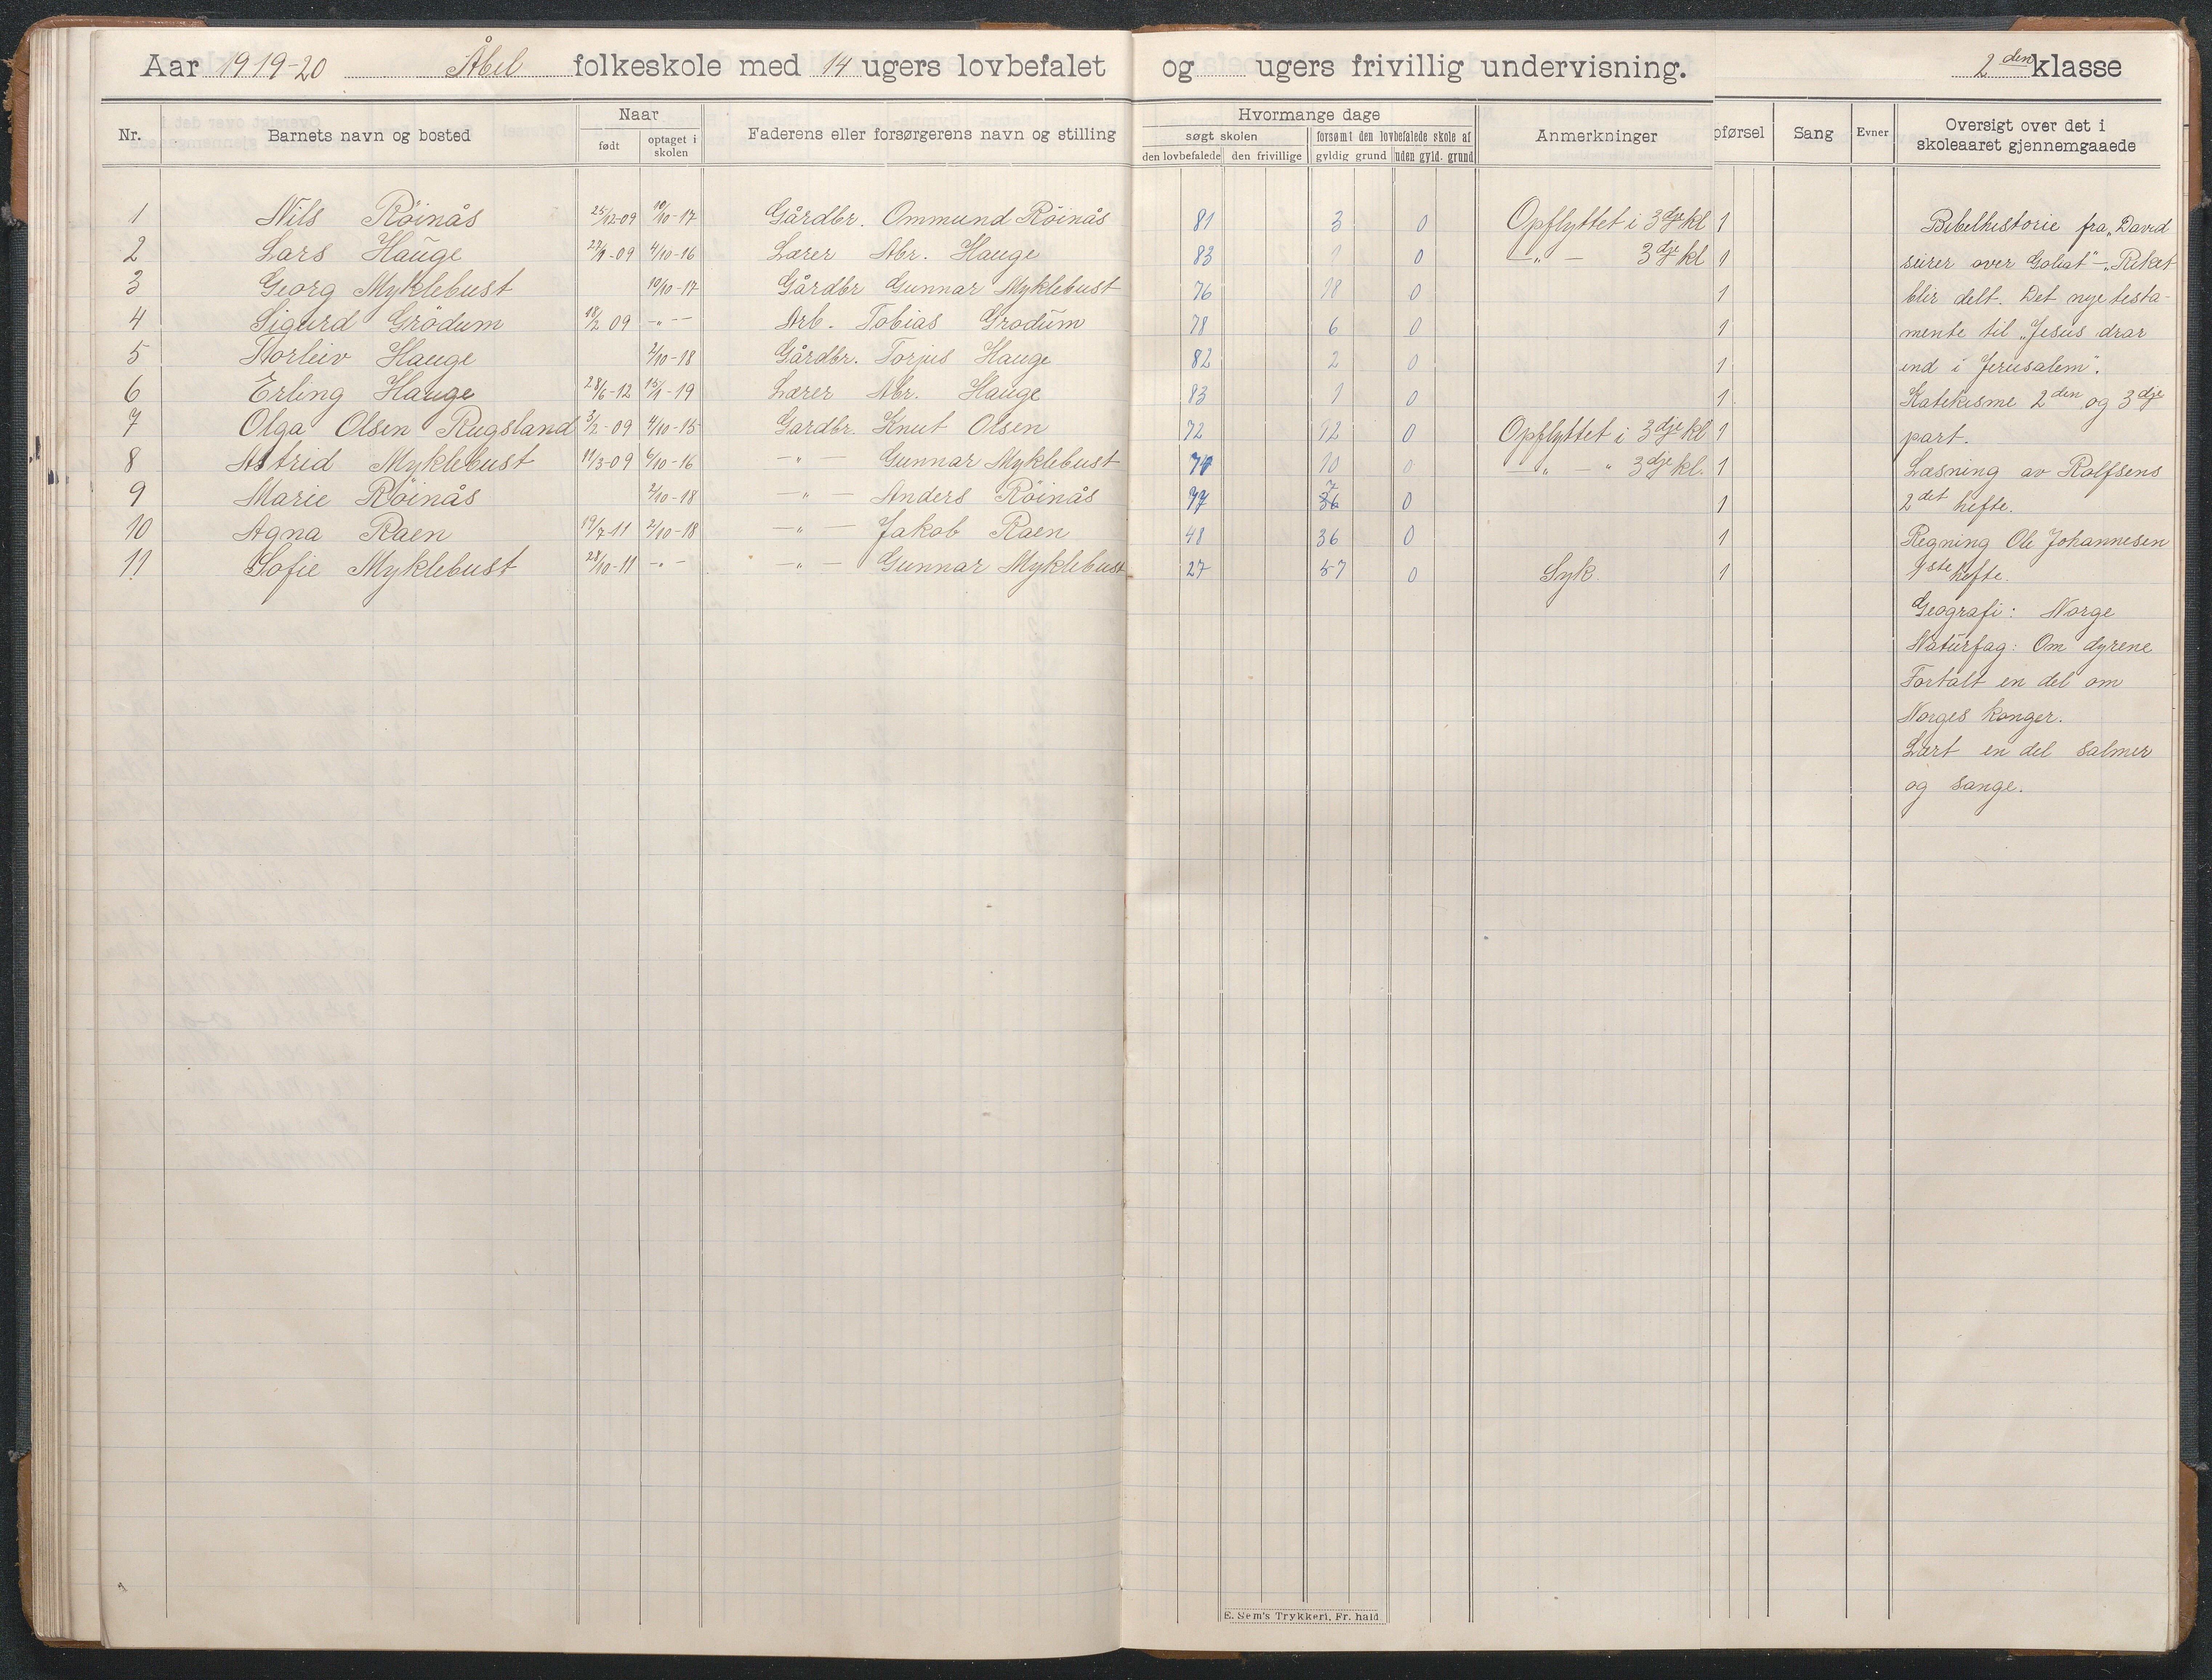 Aar 1919-20 Åbel folkeskole med 14 ugers lovbefalet og ugers frivillig undervisning. 2den klasse
Nr. Barnets navn og bosted Naar født optaget i skolen Faderens eller forsørgerens navn og stilling Hvormange dage søgt skolen den lovbefalede den frivillige forsømt den lovbefalede skole af gyldig grund uden gyld. grund Anmerkninger pførsel Sang Evner Oversigt over det i skoleaaret gjennemgaaede
1 Nils Röinås 25/12-09 10/10-17 Gårdbr. Ommund Röinås 81 3 0 Opflyttet i 3dje kl 1
2 Lars Hauge 27/9-09 4/10-16 Lærer Abr. Hauge 83 1 0 -"- 3dje kl 1
3 Georg Myklebust 10/10-17 Gårdbr Gunnar Myklebust 76 18 0 1
4 Sigurd Grödum 18/2 09 -"- Arb. Tobias Grodum 78 6 0 1
5 Torleiv Hauge 2/10-18 Gårdbr. Torjus Hauge 82 2 0 1
6 Erling Hauge 28/6-12 15/9-19 Lærer Abr. Hauge 83 1 0 1
7 Olga Olsen Rugsland 3/2-09 4/10-15 Gardbr. Knut Olsen 72 12 0 Opflyttet i 3dje kl 1
8 Astrid Myklebust 11/3-09 6/10-16 -"- Gunnar Myklebust 10 0 -"-" 3dje kl. 1
9 Marie Röinås 2/10-18 -"- Anders Röinås 77 7 36 0 1
10 Agna Raen 19/7-11 2/10-18 -"- Jakob Raen 48 36 0 1
11 Sofie Myklebust 28/10-11 -"- -"- Gunnar Myklebust 27 57 0 Syk. 1
Bibelhistorie fra „David
seirer over Goliat" - „Riket
blir delt. Det nye testa-
mente til „Jesus drar
ind i Jerusalem".
Katekisme 2den og 3dje
part.
Læsning av Rolfsens
2det hefte.
Regning Ole Johannesen
1ste hefte.
Geografi: Norge
Naturfag: Om dyrene
Fortalt en del om
Norges konger.
Lært en del salmer
og sange.
E. Sem's Trykkeri, Fr. hald